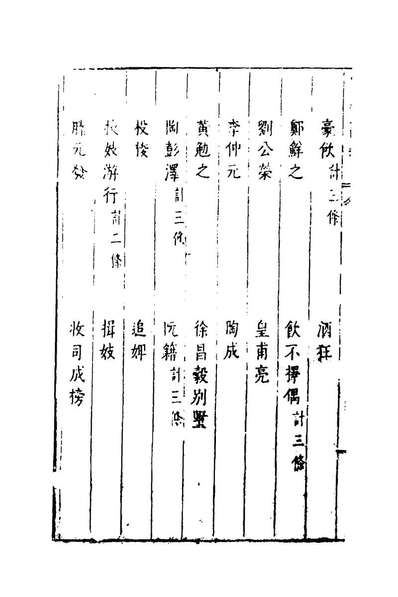 豪飲計三條
酒狂
鄭鮮之
飲不擇偶計三條
劉公榮
皇甫亮
李仲元
陶成
黃勉之
徐昌穀別墅
陶彭澤計三條
阮籍計三條
投梭
追婢
挾妓游行計二條
揖妓
滕元發
牧司成榜